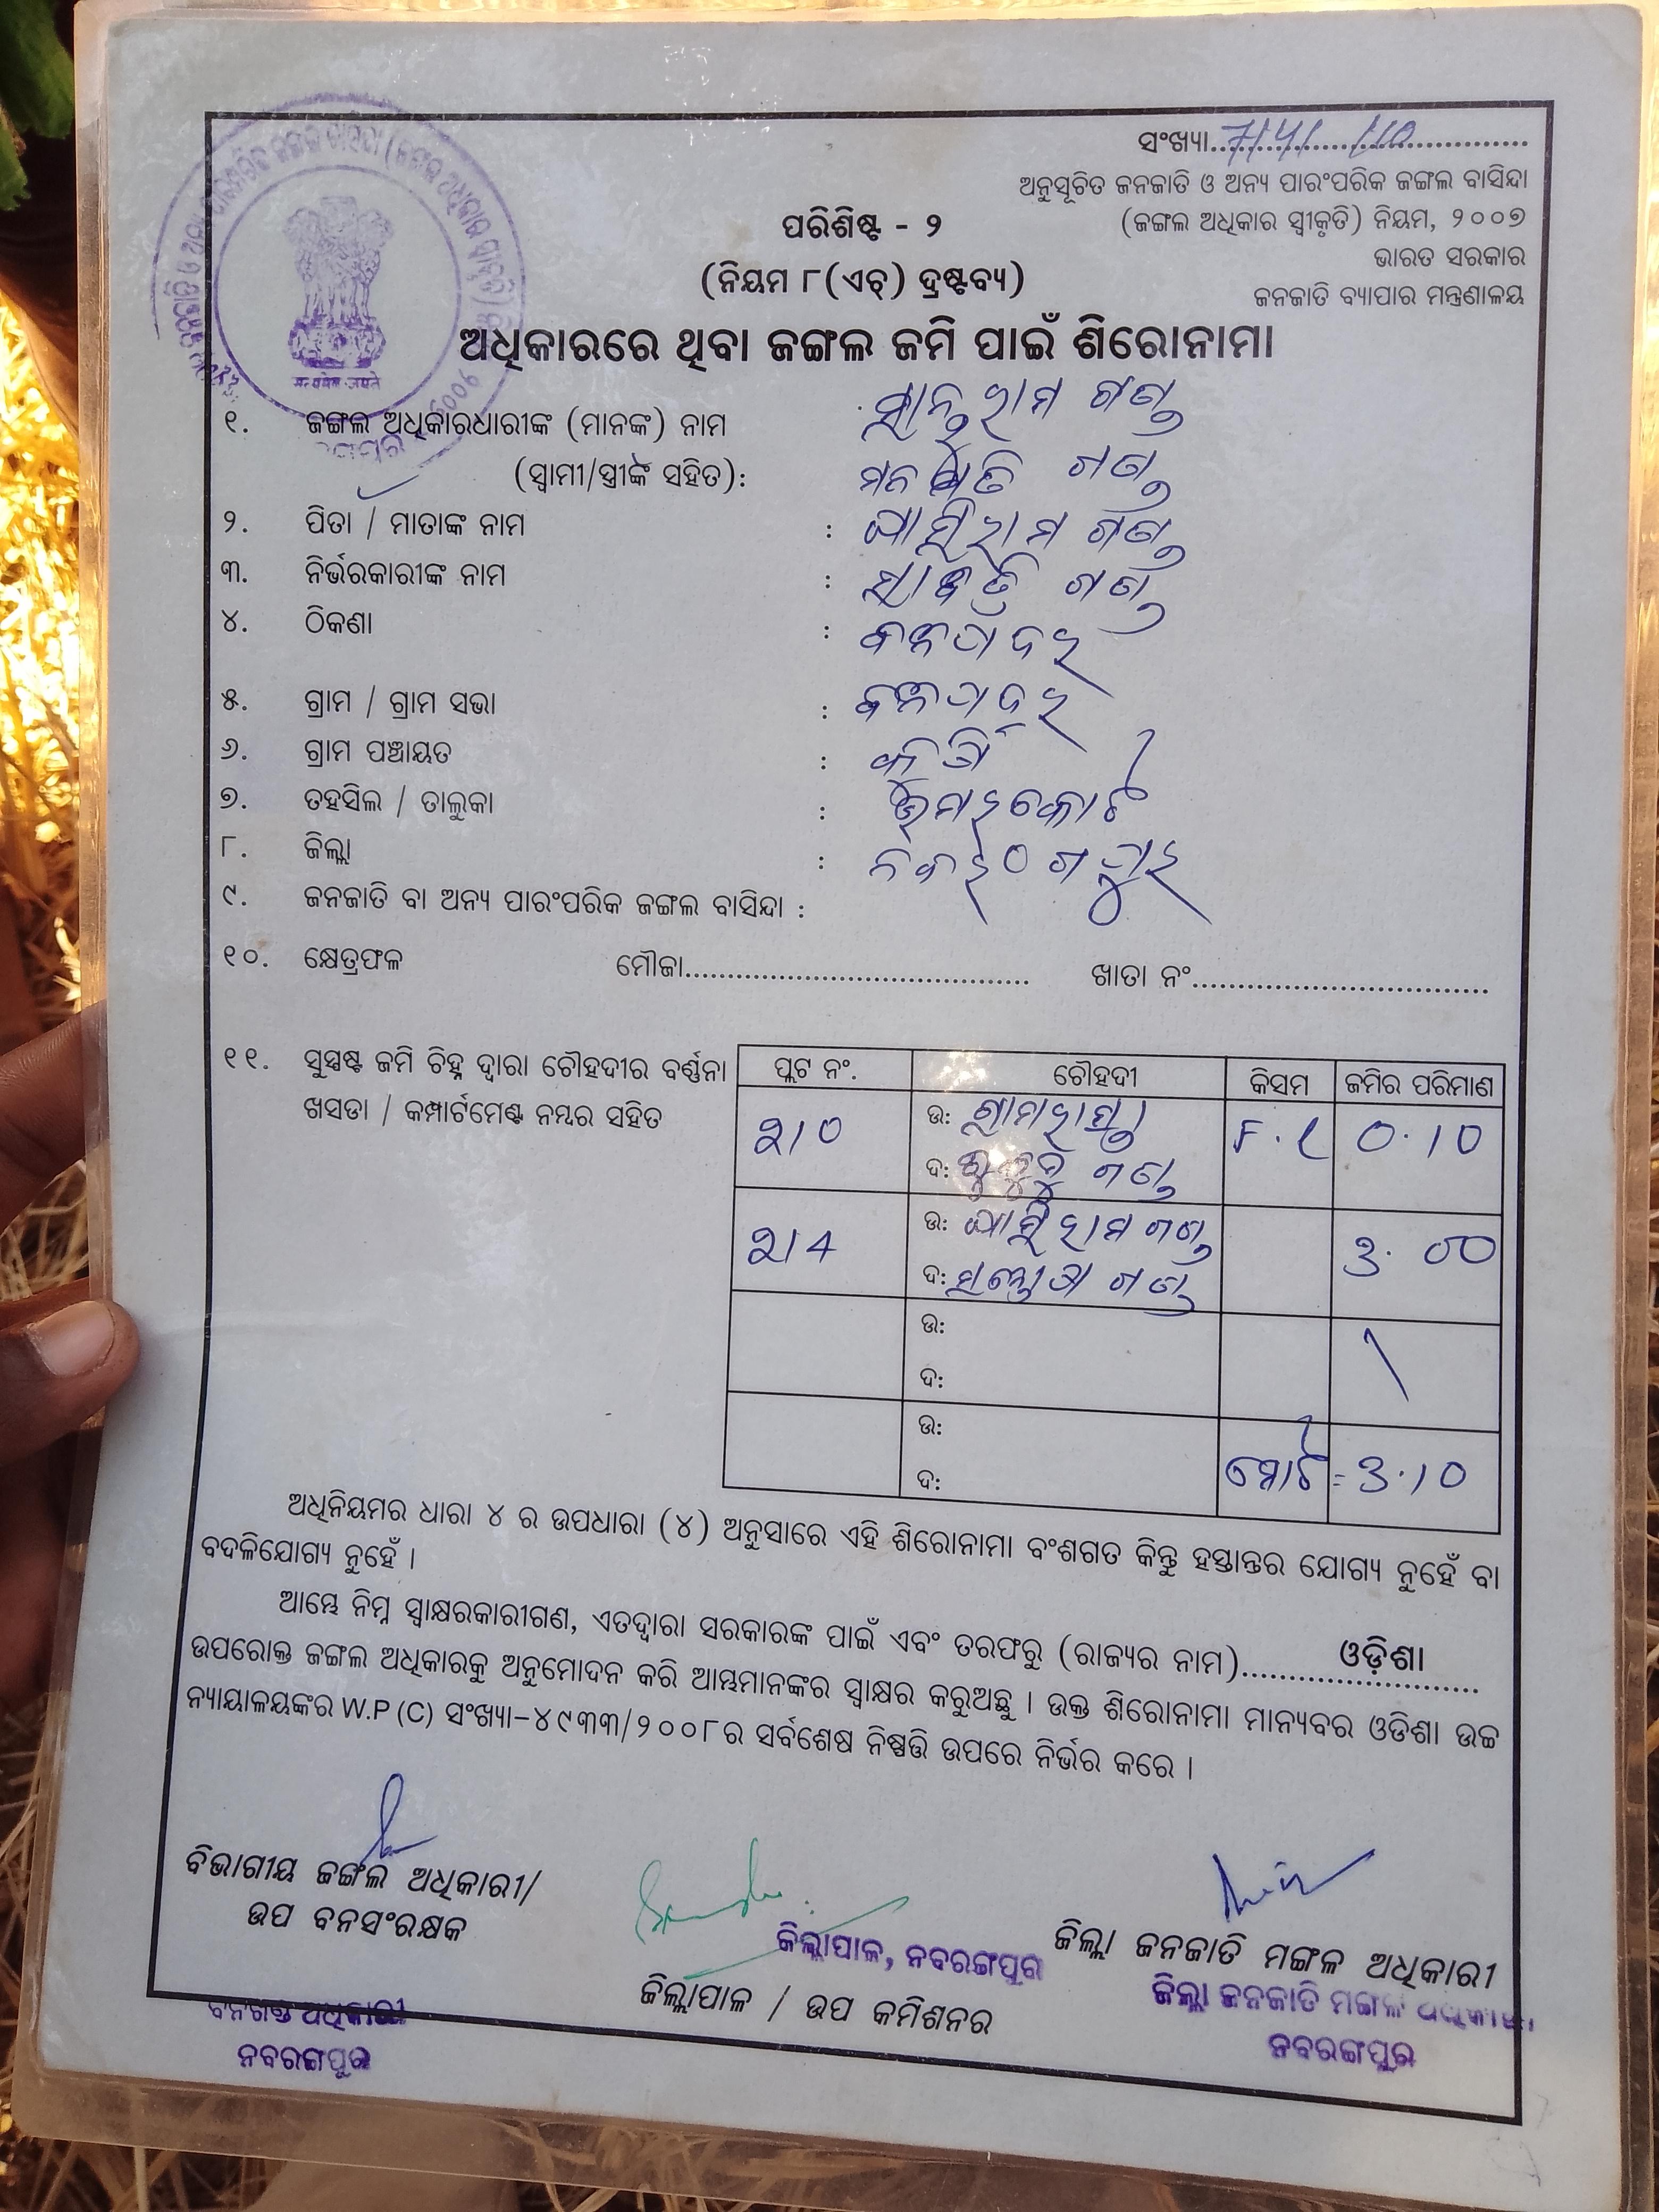 ସଂଖ୍ୟା
ଅନୁସୂଚିତ ଜନଜାତି ଓ ଅନ୍ୟ ପାରଂପରିକ ଜଙ୍ଗଲ ବାସିନ୍ଦା
(ଜଙ୍ଗଲ ଅଧିକାର ସ୍ୱୀକୃତି) ନିୟମ, ୨୦୦୭
ଭାରତ ସରକାର
ଜନଜାତି ବ୍ୟାପାର ମନ୍ତ୍ରଣାଳୟ
ପରିଶିଷ୍ଟ - ୨
(ନିୟମ ୮(ଏଚ୍) ଦ୍ରଷ୍ଟବ୍ୟ)
ଅଧିକାରରେ ଥିବା ଜଙ୍ଗଲ ଜମି ପାଇଁ ଶିରୋନାମା
୧. ଜଙ୍ଗଲ ଅଧିକାରଧାରୀଙ୍କ (ମାନଙ୍କ) ନାମ ଗଣ୍ଡ
(ସ୍ୱାମୀ/ସ୍ତ୍ରୀଙ୍କ ସହିତ): ଗଣ୍ଡ
୨. ପିତା / ମାତାଙ୍କ ନାମ : ଗଣ୍ଡ
୩. ନିର୍ଭରକାରୀଙ୍କ ନାମ : ଗଣ୍ଡ
୪. ଠିକଣା :
୫. ଗ୍ରାମ / ଗ୍ରାମ ସଭା :
୬. ଗ୍ରାମ ପଞ୍ଚାୟତ :
୭. ତହସିଲ / ତାଲୁକା : ଉମରକୋଟ
୮. ଜିଲ୍ଲା :
୯. ଜନଜାତି ବା ଅନ୍ୟ ପାରଂପରିକ ଜଙ୍ଗଲ ବାସିନ୍ଦା :
୧୦. କ୍ଷେତ୍ରଫଳ ମୌଜା ଖାତା ନଂ
୧୧. ସୁସ୍ପଷ୍ଟ ଜମି ଚିହ୍ନ ଦ୍ୱାରା ଚୌହଦୀର ବର୍ଣ୍ଣନା
ଖସଡା / କମ୍ପାର୍ଟମେଣ୍ଟ ନମ୍ବର ସହିତ
ପ୍ଲଟ ନଂ. ଚୌହଦୀ କିସମ ଜମିର ପରିମାଣ
ଉ:
210 F.L 0.10
ଦ: ଗଣ୍ଡ
ଉ: ଗଣ୍ଡ
214 3.00
ଦ: ଗଣ୍ଡ
ଉ:
ଦ:
ଉ:
ଦ: ମୋଟ = 3.10
ଅଧିନିୟମର ଧାରା ୪ ର ଉପଧାରା (୪) ଅନୁସାରେ ଏହି ଶିରୋନାମା ବଂଶଗତ କିନ୍ତୁ ହସ୍ତାନ୍ତର ଯୋଗ୍ୟ ନୁହେଁ ବା
ବଦଳିଯୋଗ୍ୟ ନୁହେଁ ।
ଆମ୍ଭେ ନିମ୍ନ ସ୍ୱାକ୍ଷରକାରୀଗଣ, ଏତଦ୍ଦ୍ୱାରା ସରକାରଙ୍କ ପାଇଁ ଏବଂ ତରଫରୁ (ରାଜ୍ୟର ନାମ) ଓଡ଼ିଶା
ଉପରୋକ୍ତ ଜଙ୍ଗଲ ଅଧିକାରକୁ ଅନୁମୋଦନ କରି ଆମ୍ଭମାନଙ୍କର ସ୍ୱାକ୍ଷର କରୁଅଛୁ । ଉକ୍ତ ଶିରୋନାମା ମାନ୍ୟବର ଓଡିଶା ଉଚ୍ଚ
ନ୍ୟାୟାଳୟଙ୍କର W.P (C) ସଂଖ୍ୟା–୪୯୩୩/୨୦୦୮ର ସର୍ବଶେଷ ନିଷ୍ପତ୍ତି ଉପରେ ନିର୍ଭର କରେ ।
ବିଭାଗୀୟ ଜଙ୍ଗଲ ଅଧିକାରୀ/
ଉପ ବନସଂରକ୍ଷକ
ବନଖଣ୍ଡ ଅଧିକାରୀ
ନବରଙ୍ଗପୁର
ଜିଲ୍ଲାପାଳ, ନବରଙ୍ଗପୁର
ଜିଲ୍ଲାପାଳ / ଉପ କମିଶନର
ଜିଲ୍ଲା ଜନଜାତି ମଙ୍ଗଳ ଅଧିକାରୀ
ଜିଲ୍ଲା ଜନଜାତି ମଙ୍ଗଳ ଅଧିକାରୀ
ନବରଙ୍ଗପୁର